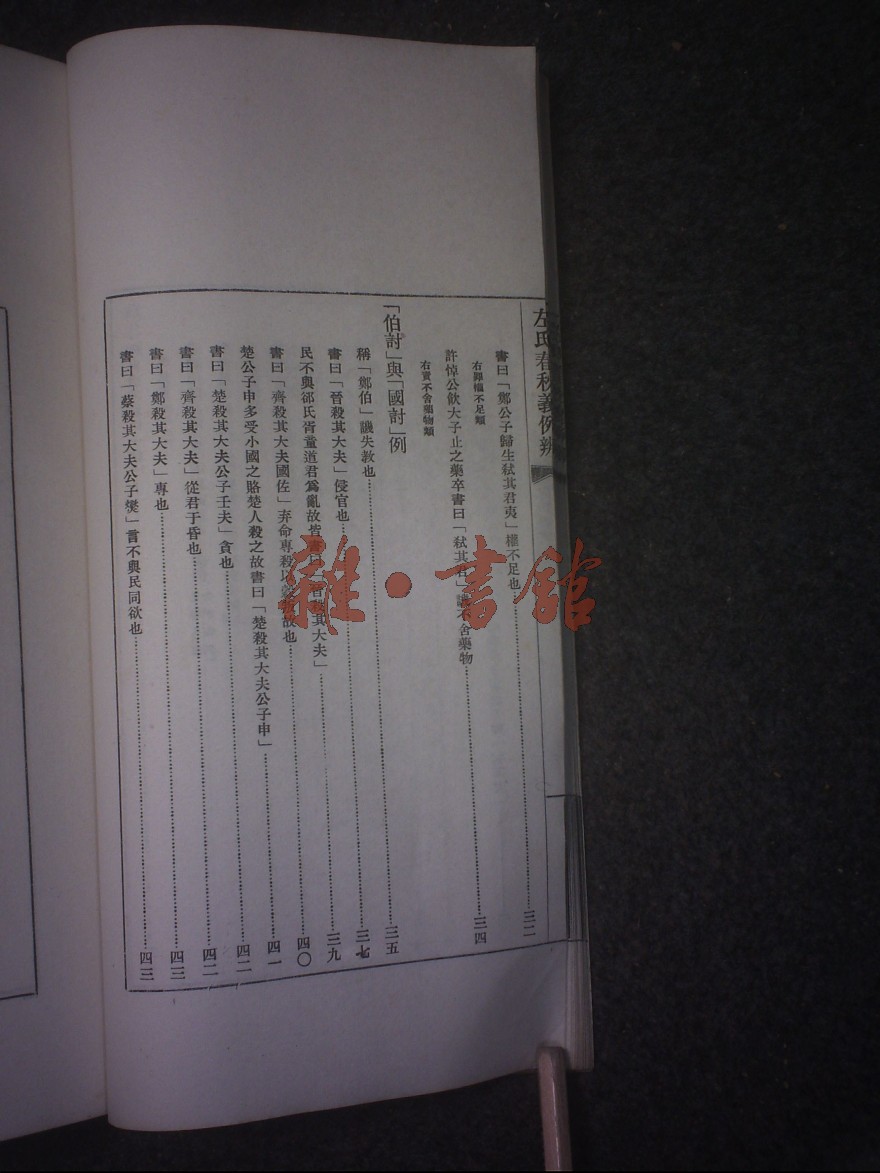 左氏春秋義例辨
書曰「鄭公子歸生弒其君夷」權不足也……三二
右罪權不足類
許悼公飲大子止之藥卒書曰「弒其君」譏不舍藥物……三四
右責不舍藥物類
「伯討」與「國討」例……三五
稱「鄭伯」譏失教也……三七
書曰「晉殺其大夫」侵官也……三九
民不與郤氏胥童道君爲亂故皆書曰「晉殺其大夫」……四〇
書曰「齊殺其大夫國佐」弃命專殺以穀叛故也……四一
楚公子申多受小國之賂楚人殺之故書曰「楚殺其大夫公子申」……四二
書曰「楚殺其大夫公子壬夫」貪也……四二
書曰「齊殺其大夫」從君于昏也……四三
書曰「鄭殺其大夫」專也……四三
書曰「蔡殺其大夫公子燮」言不與民同欲也
雜·書館